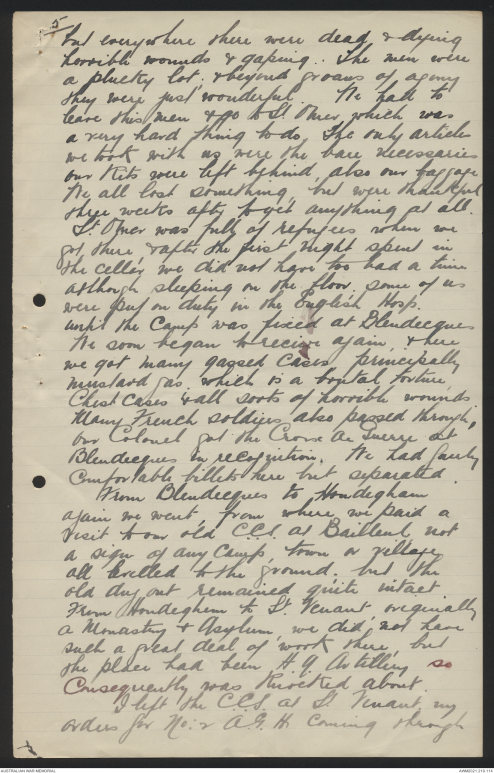 5
but everywhere there were dead & dying
horrible wounds & gaping.. The men were
a plucky lot, & beyond groans of agony
they were just wonderful. We had to
leave this men & go to St. Omer which was
a very hard thing to do. The only articles
we took with us were the bare necessaries
our Kits were left behind, also our baggage
We all lost something, but were thankful
three weeks after to get anything at all.
St. Omer was full of refugees when we
got there, & after the first night spent in
the cellar we did not have too bad a time
although sleeping on the floor. Some of us
were put on duty in the English Hosp.
until the Camp was fixed at Blendecques
We soon began to receive again, & here
we got many gassed cases, principally
mustard gas, which is a brutal torture,
Chest cases & all sorts of horrible wounds
Many French soldiers also passed through,
our Colonel got the Croix de Guerre at
Blendecques in recognition. We had fairly
Comfortable billets here but separated.
From Blendecques to Hondeghem
again we went, from where we paid a
visit to our old C.C.S. at Bailleul, not
a sign of any Camp, town or village
all levelled to the ground. but the
old dug out remained quite intact.
From Hondeghem to St. Venant originally
a Monastry & Asylum, we did not have
such a great deal of work there, but
the place had been H.Q. Artillery so
Consequently was Knocked about.
I left the C.C.S. at St. Venant, my
orders for No: 2 A.G.H. coming through
AUSTRALIAN WAR MEMORIAL